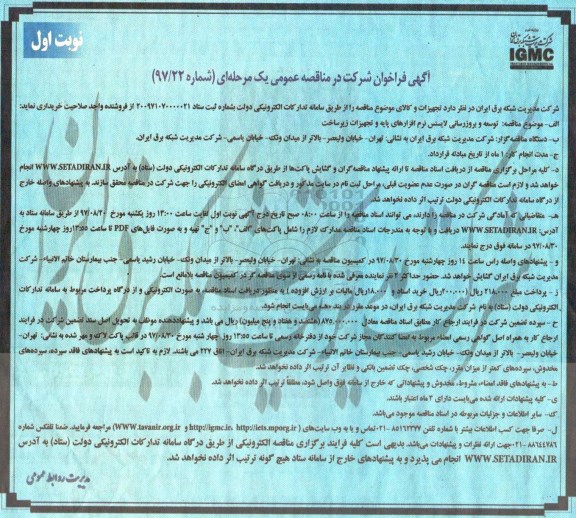 نوبت اول
IGMC
آگهی فراخوان شرکت در مناقصه عمومی یک مرحله‌ای (شماره ۹۷/۲۲)
شرکت مدیریت شبکه برق ایران در نظر دارد تجهیزات و کالای موضوع مناقصه را از طریق سامانه تدارکات الکترونیکی دولت بشماره ثبت ستاد ۲۰۰۹۷۱۰۷۰۰۰۰۰۲۱ از فروشنده واجد صلاحیت خریداری نماید:
الف- موضوع مناقصه: توسعه و بروزرسانی لایسنس نرم افزارهای پایه و تجهیزات زیرساخت
ب- دستگاه مناقصه گزار: شرکت مدیریت شبکه برق ایران به نشانی: تهران- خیابان ولیعصر- بالاتر از میدان ونک- خیابان یاسمی- شرکت مدیریت شبکه برق ایران.
ج- مدت انجام کار: ۱ ماه از تاریخ مبادله قرارداد.
د- کلیه مراحل برگزاری مناقصه از دریافت اسناد مناقصه تا ارائه پیشنهاد مناقصه‌گران و گشایش پاکت‌ها از طریق درگاه سامانه تدارکات الکترونیکی دولت (ستاد) به آدرس WWW.SETADIRAN.IR انجام
خواهد شد و لازم است مناقصه گران در صورت عدم عضویت قبلی، مراحل ثبت نام در سایت مذکور و دریافت گواهی امضای الکترونیکی را جهت شرکت در مناقصه محقق سازند. به پیشنهادهای واصله خارج
از درگاه سامانه تدارکات الکترونیکی دولت ترتیب اثر داده نخواهد شد.
هـ- متقاضیانی که آمادگی شرکت در مناقصه را دارند، می توانند اسناد مناقصه را از ساعت ۰۸:۰۰ صبح تاریخ درج آگهی نوبت اول لغایت ساعت ۱۳:۰۰ روز یکشنبه مورخ ۹۷/۰۸/۲۰ از طریق سامانه ستاد به
آدرس: WWW.SETADIRAN.IR دریافت و با توجه به مندرجات اسناد مناقصه مدارک لازم را شامل پاکت‌های "الف"، "ب" و "ج" تهیه و به صورت فایل‌های PDF تا ساعت ۱۳:۵۵ روز چهارشنبه مورخ
۹۷/۰۸/۳۰ در سامانه فوق درج نمایند.
و- پیشنهادهای واصله راس ساعت ۱۴ روز چهارشنبه مورخ ۹۷/۰۸/۳۰ در کمیسیون مناقصه به نشانی: تهران- خیابان ولیعصر- بالاتر از میدان ونک- خیابان رشید یاسمی- جنب بیمارستان خاتم الانبیاء- شرکت
مدیریت شبکه برق ایران گشایش خواهد شد. حضور حداکثر ۲ نفر نماینده معرفی شده با نامه رسمی از سوی مناقصه گر در کمیسیون مناقصه بلامانع است.
ز- پرداخت مبلغ ۲۱۸.۰۰۰ ریال (۲۰۰.۰۰۰ریال خرید اسناد و ۱۸.۰۰۰ریال مالیات بر ارزش افزوده) به منظور دریافت اسناد مناقصه، به صورت الکترونیکی و از درگاه پرداخت مربوط به سامانه تدارکات
الکترونیکی دولت (ستاد) به نام شرکت مدیریت شبکه برق ایران، در موعد مقرر، می‌بایست انجام شود.
ح- سپرده تضمین شرکت در فرایند ارجاع کار مطابق اسناد مناقصه معادل ۸۷۵.۰۰۰.۰۰۰ (هشتصد و هفتاد و پنج میلیون) ریال می باشد و پیشنهاددهنده موظف به تحویل اصل سند تضمین شرکت در فرایند
ارجاع کار به همراه اصل گواهی رسمی امضاء مربوط به امضا کنندگان مجاز شرکت خود از دفترخانه رسمی تا ساعت ۱۳:۵۵ روز چهار شنبه مورخ ۹۷/۰۸/۳۰ در قالب پاکت لاک و مهر شده به نشانی: تهران-
خیابان ولیعصر- بالاتر از میدان ونک- خیابان رشید یاسمی- جنب بیمارستان خاتم الانبیاء- شرکت مدیریت شبکه برق ایران- اتاق ۲۲۷ می باشند. لازم به تاکید است به پیشنهادهای فاقد سپرده، سپرده‌های
مخدوش، سپرده‌های کمتر از میزان مقرر، چک شخصی، چک تضمین بانکی و نظایر آن ترتیب اثر داده نخواهد شد.
ط- به پیشنهادهای فاقد امضاء، مشروط، مخدوش و پیشنهاداتی که خارج از سامانه فوق واصل شود، مطلقا ترتیب اثر داده نخواهد شد.
ی- کلیه پیشنهادات ارائه شده می‌بایست دارای ۳ ماه اعتبار باشند.
ک- سایر اطلاعات و جزئیات مربوطه در اسناد مناقصه موجود می‌باشد.
ل- صرفا جهت کسب اطلاعات بیشتر با شماره تلفن ۰۲۱-۸۵۱۶۲۳۷۷ تماس و یا به وب سایت‌های (http://igmc.ir، http://iets.mporg.ir و WWW.tavanir.org.ir) مراجعه فرمایید. ضمنا تلفکس شماره
۰۲۱-۸۸۶۴۴۷۸۶ جهت ارائه نظرات و پیشنهادات می‌باشد. بدیهی است کلیه فرایند برگزاری مناقصه الکترونیکی از طریق درگاه سامانه تدارکات الکترونیکی دولت (ستاد) به آدرس
WWW.SETADIRAN.IR انجام می پذیرد و به پیشنهادهای خارج از سامانه ستاد هیچ گونه ترتیب اثر داده نخواهد شد.
مدیریت روابط عمومی